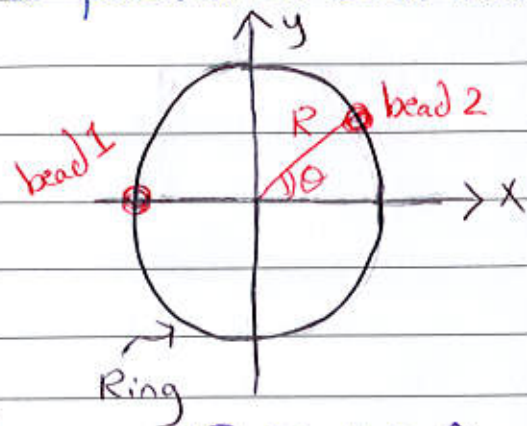 y
bead 2
R
bead 1
θ
X
Ring